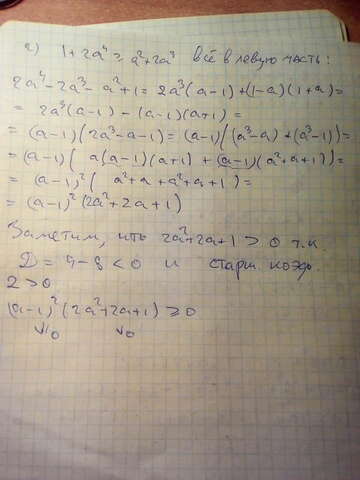 г) 1+2a⁴ ≥ a²+2a³ Всё в левую часть:
2a⁴-2a³-a²+1 = 2a³(a-1)+(1-a)(1+a)=
= 2a³(a-1) - (a-1)(a+1) =
= (a-1)(2a³-a-1) = (a-1)((a³-a)+(a³-1))=
= (a-1)( a(a-1)(a+1) + (a-1)(a²+a+1))=
= (a-1)²( a²+a+a²+a+1)=
= (a-1)²(2a²+2a+1)
Заметим, что 2a²+2a+1 > 0 т.к.
D = 4-8 < 0 и старш. коэф.
2>0
(a-1)²(2a²+2a+1) ≥ 0
≥0 >0